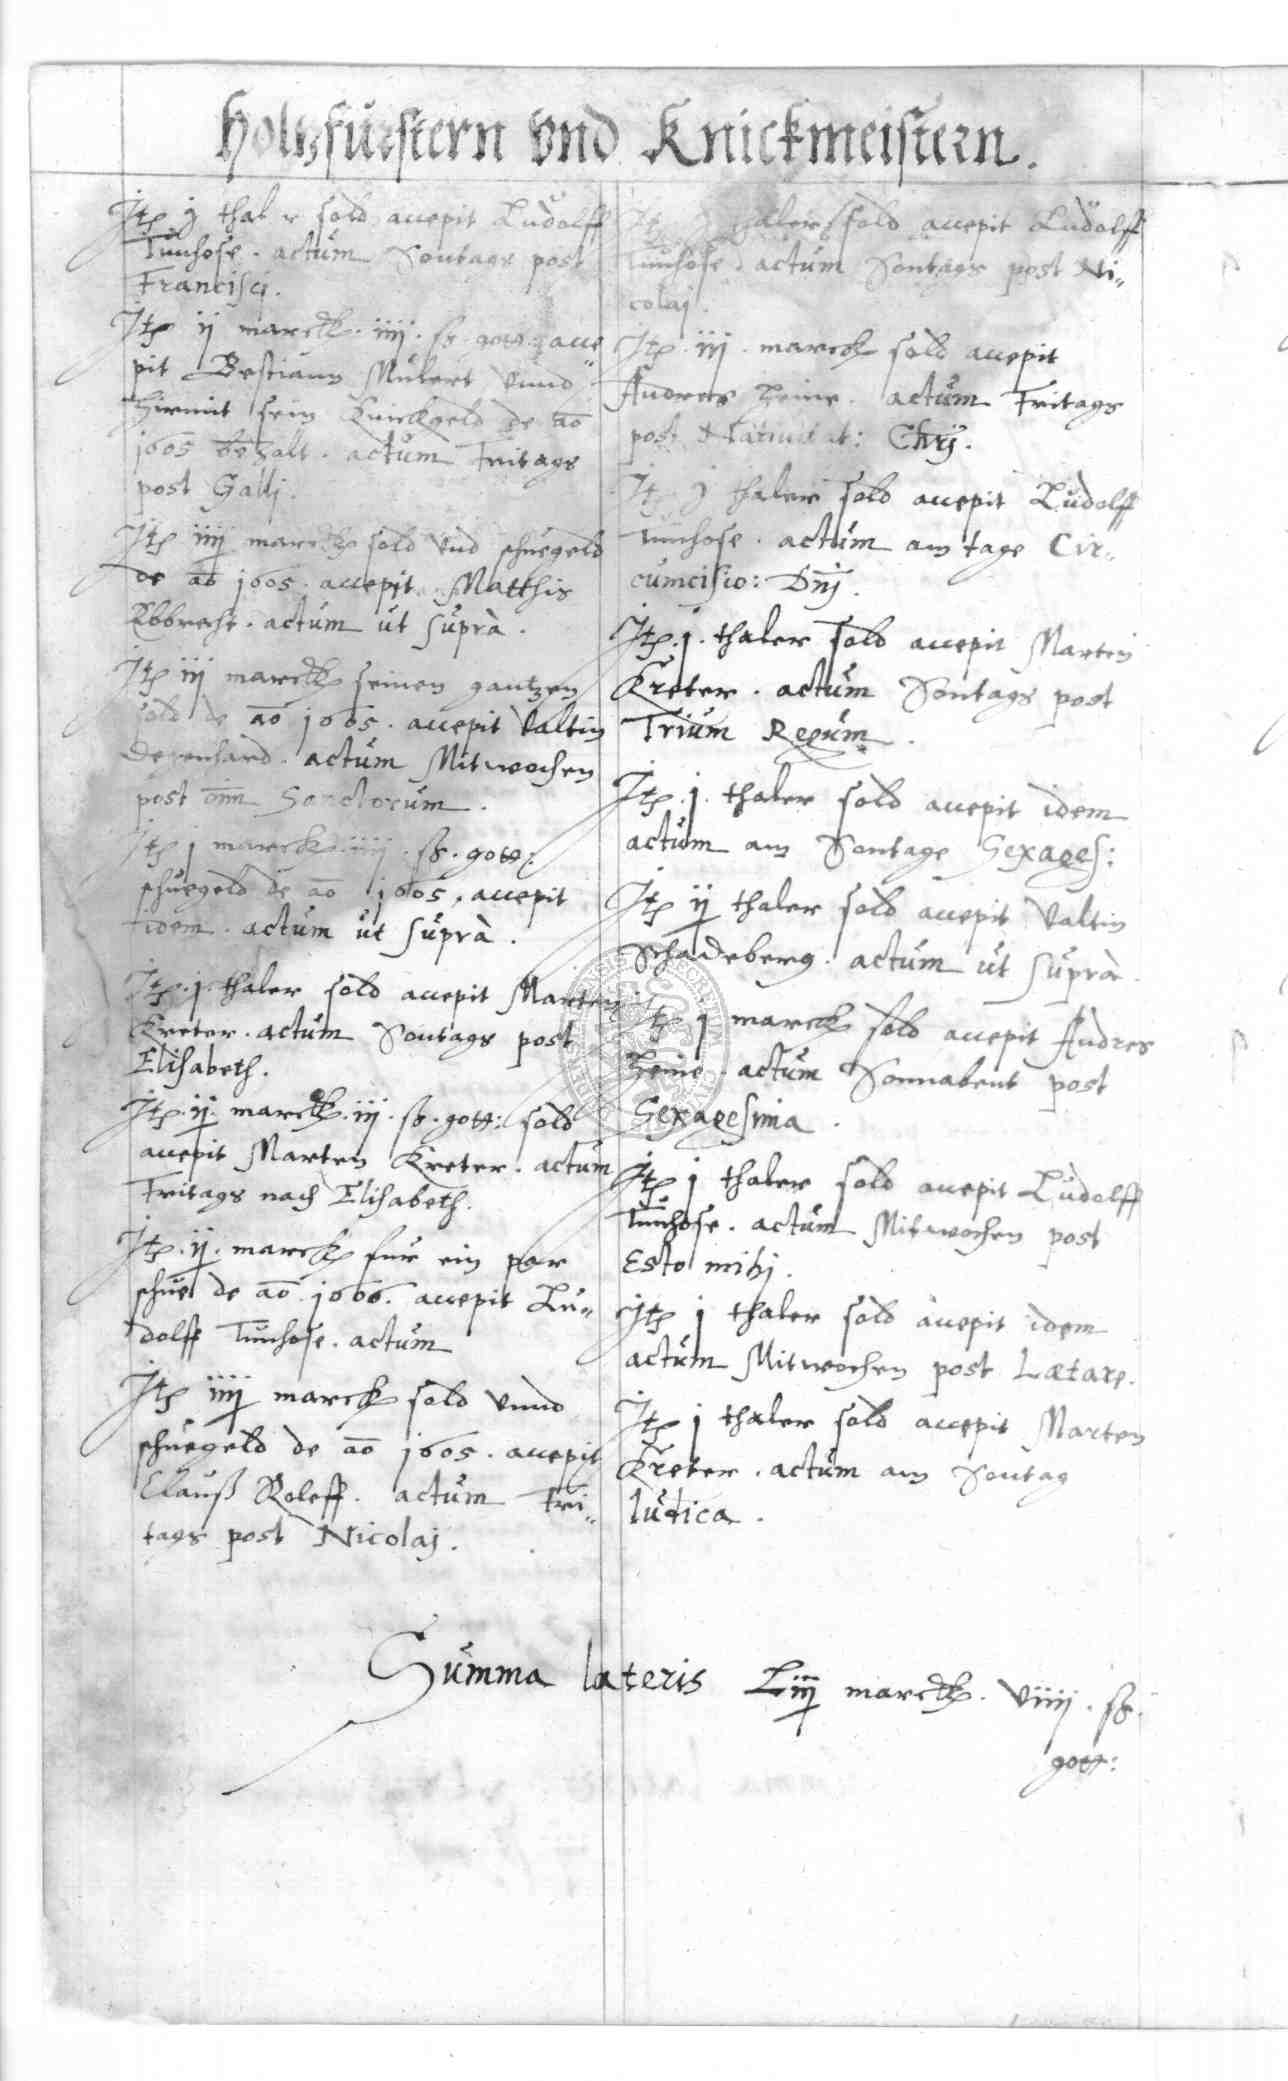 Holtzfürstern vnd Knickmeistern.
Itē j thaler sold accepit Ludolff
Tunhose. actum Sontags post
Francisci.
Itē ij marck. iiij. ß. gott: acce
pit Bestiann Mulert vnnd
hiemit sein Knickgeld de ao
1605 bezalt. actum Fritags
post Galli.
Itē iiij marck sold vnd schuegeld
de ao 1605. accepit Matthis
Ebbrecht. actum ut suprà.
Itē iij marck seinen gantzen
sold de ao 1605. accepit Valtin
Degenhard. actum Mitwochen
post om̄ Sanctorum.
Itē j marck iiij. ß. gott:
schuegeld de ao 1605, accepit
idem. actum ut suprà.
Itē. j. thaler sold accepit Marten
Kreter. actum Sontags post
Elisabeth.
Itē. ij. marck. iij. ß. gott: sold
accepit Marten Kreter. actum
Fritags nach Elisabeth.
Itē. ij. marck fur ein par
schue de ao 1606. accepit Lu=
dolff Tunhose. actum
Itē iiij marck sold vnnd
schuegeld de ao 1605. accepit
Clauß Roleff. actum Fri=
tags post Nicolaj.
Itē j thaler sold accepit Ludolff
Tunhose. actum Sontags post Ni=
colaj.
Itē. iij. marck sold accepit
Andres Heine. actum Fritags
post Natiuitat: Chrj.
Itē j thaler sold accepit Ludolff
Tunhose. actum am tage Cir=
cumcisio: Dn̄j.
Itē. j. thaler sold accepit Marten
Kreter. actum Sontags post
Trium Regum.
Itē. j. thaler sold accepit idem
actum am Sontage Sexages:
Itē ij thaler sold accepit Valtin
Schadeberg. actum ut suprà.
Itē j marck sold accepit Andres
Heine. actum Sonnabent post
Sexagesima.
Itē j thaler sold accepit Ludolff
Tunhose. actum Mitwochen post
Esto mihi.
Itē j thaler sold accepit idem
actum Mitwochen post Lætare.
Itē j thaler sold accepit Marten
Kreter. actum am Sontag
Iudica.
Summa lateris Liij marck. viiij. ß.
gott: